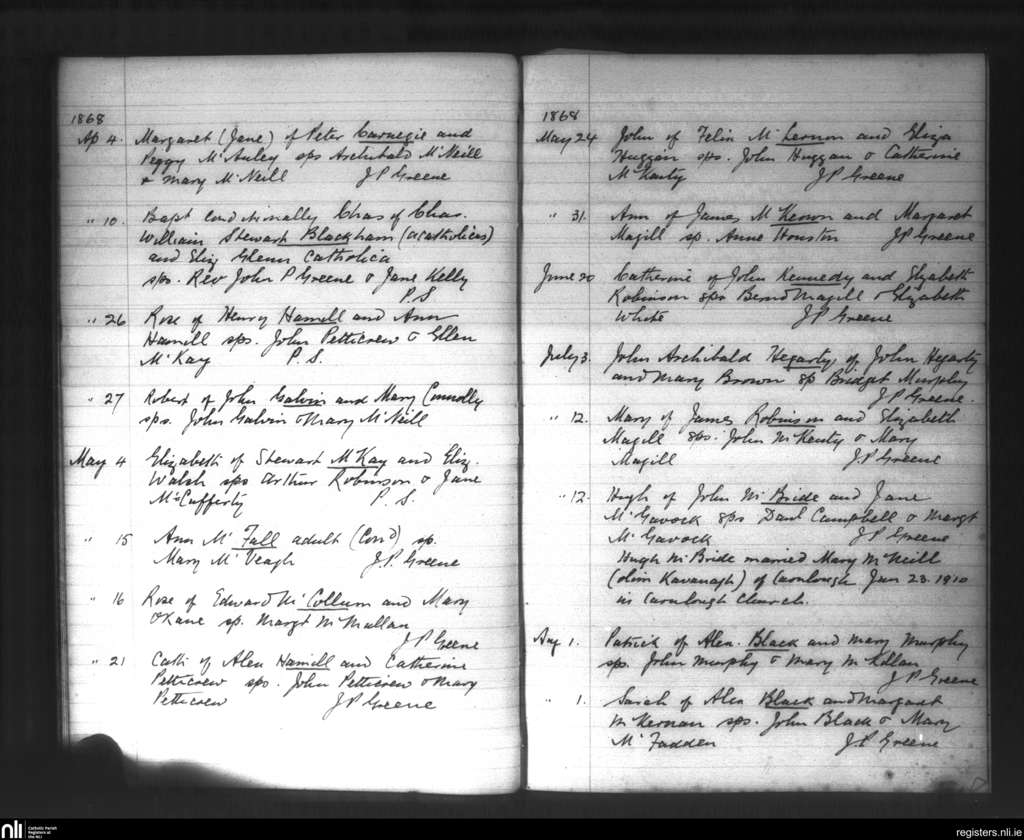 1868
Ap 4. Margaret (Jane) of Peter Carnegie and
Peggy McAuley sps Archibald McNeill
& Mary McNeill J P Greene
" 10. Bapt conditionally Chas of Chas.
William Stewart Blackham (acatholicus)
and Eliz Glenn Catholica
sps. Rev John P Greene & Jane Kelly
P.S
" 26 Rose of Henry Hamill and Ann
Hamill sps. John Petticrew & Ellen
McKay P. S.
" 27 Robert of John Galvin and Mary Connolly
sps. John Galvin & Mary McNeill
May 4 Elizabeth of Stewart McKay and Eliz.
Walsh sps Arthur Robinson & Jane
McCafferty P. S.
" 15 Ann McFall adult (Cond) sp.
Mary McVeagh J.P. Greene
" 16 Rose of Edward McCollum and Mary
O'Kane sp. Margt McMullan
J P Greene
" 21 Cath of Alex Hamill and Catherine
Petticrew sps. John Petticrew & Mary
Petticrew J P Greene
1868
May 24 John of Felix McLernon and Eliza
Huggan sps. John Huggan & Catherine
McKenty J P Greene
" 31. Ann of James McKeown and Margaret
Magill sp. Anne Houston J P Greene
June 20 Catherine of John Kennedy and Elizabeth
Robinson sps Bernd Magill & Elizabeth
White J P Greene
July 3. John Archibald Hegarty, of John Hegarty
and Mary Brown sp Bridget Murphy
J P Greene.
" 12. Mary of James Robinson and Elizabeth
Magill sps. John McKenty & Mary
Magill J. P Greene
" 12. Hugh of John McBride and Jane
McGavock sps Danl Campbell & Margt
McGavock J P Greene
Hugh McBride married Mary McNeill
(olim Kavanagh) of Carnlough Jan 23. 1910
in Carnlough Church.
Aug 1. Patrick of Alex. Black and Mary Murphy
sp. John Murphy & Mary
J P Greene
" 1. Sarah of Alex Black and Margaret
McKernan sps. John Black & Mary
McFadden J. P Greene
nli Catholic Parish
Registers at
the NLI
registers.nli.ie